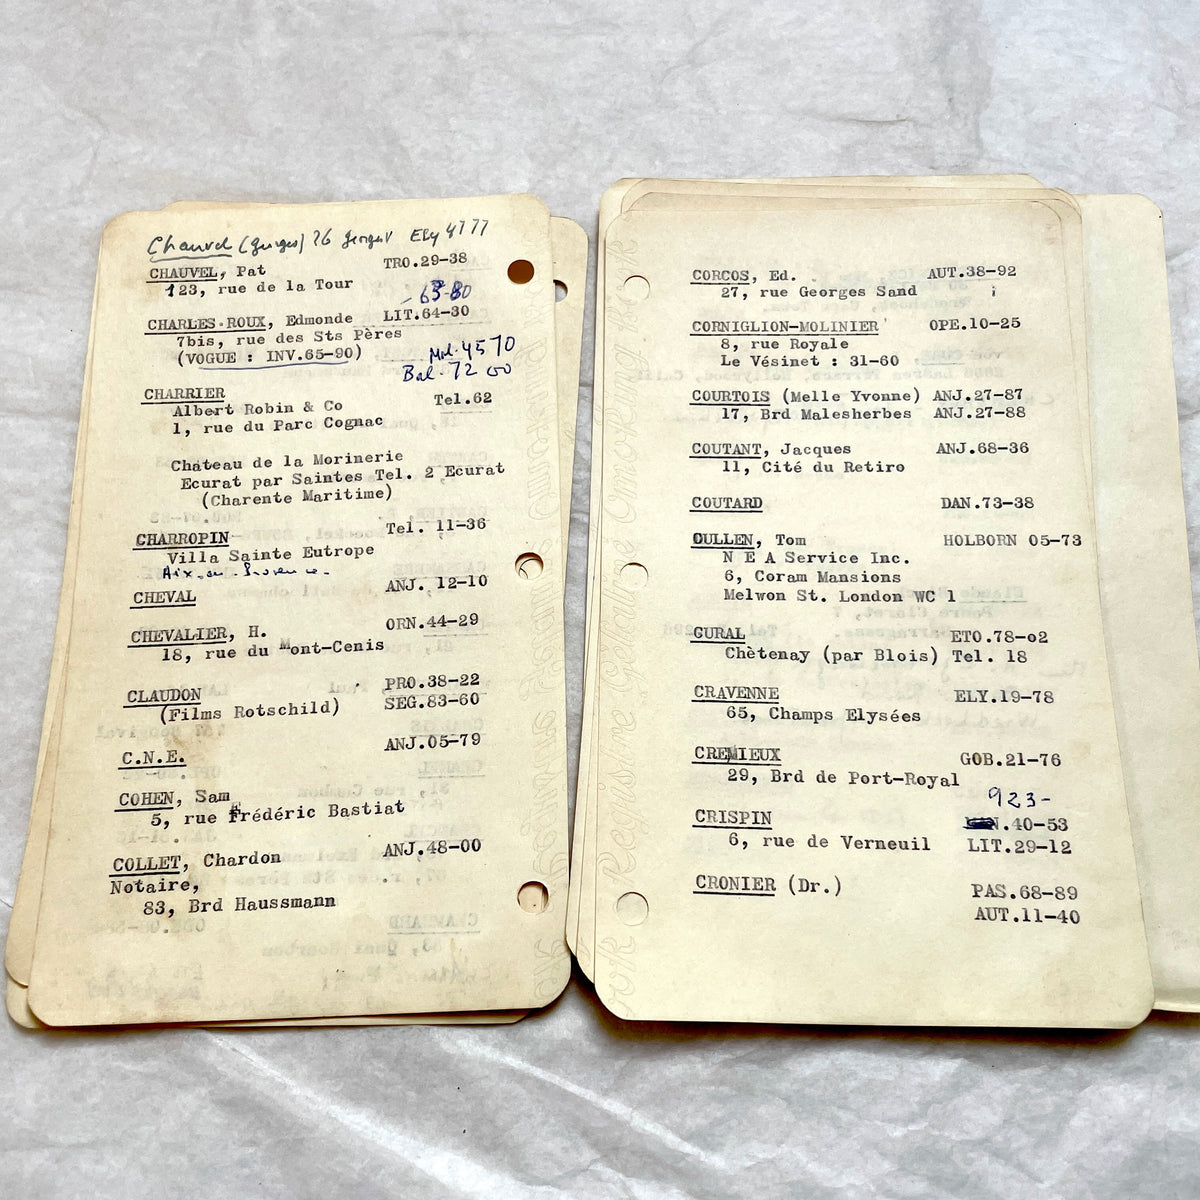 Chauvel (Georges) 26 George V Ely 4777
CHAUVEL, Pat TRO.29-38
123, rue de la Tour
- 63-80
CHARLES-ROUX, Edmonde LIT.64-30
7bis, rue des Sts Pères
(VOGUE : INV.65-90) Mol.4570
Bal.7200
CHARRIER Tel.62
Albert Robin & Co
1, rue du Parc Cognac
Chateau de la Morinerie
Ecurat par Saintes Tel. 2 Ecurat
(Charente Maritime)
CHARROPIN Tel. 11-36
Villa Sainte Eutrope
Aix-en-Provence-
CHEVAL ANJ. 12-10
CHEVALIER, H. ORN.44-29
18, rue du Mont-Cenis
CLAUDON PRO.38-22
(Films Rotschild) SEG.83-60
C.N.E. ANJ.05-79
COHEN, Sam
5, rue Frédéric Bastiat
COLLET, Chardon ANJ.48-00
Notaire,
83, Brd Haussmann
CORCOS, Ed. AUT.38-92
27, rue Georges Sand
CORNIGLION-MOLINIER OPE.10-25
8, rue Royale
Le Vésinet : 31-60
COURTOIS (Melle Yvonne) ANJ.27-87
17, Brd Malesherbes ANJ.27-88
COUTANT, Jacques ANJ.68-36
11, Cité du Retiro
COUTARD DAN.73-38
CULLEN, Tom HOLBORN 05-73
N E A Service Inc.
6, Coram Mansions
Melwon St. London WC 1
CURAL ETO.78-02
Chètenay (par Blois) Tel. 18
CRAVENNE ELY.19-78
65, Champs Elysées
CREMIEUX GOB.21-76
29, Brd de Port-Royal
923-
CRISPIN N.40-53
6, rue de Verneuil LIT.29-12
CRONIER (Dr.) PAS.68-89
AUT.11-40